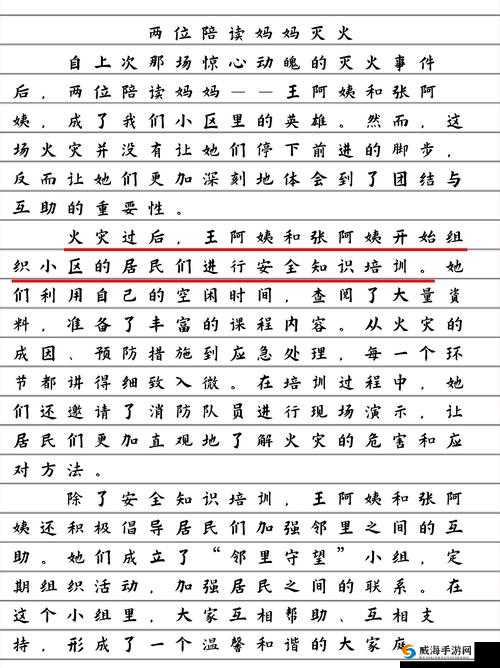 两位陪读妈妈灭火
自上次那场惊心动魄的灭火事件
后，两位陪读妈妈——王阿姨和张阿
姨，成了我们小区里的英雄。然而，这
场火灾并没有让她们停下前进的脚步，
反而让她们更加深刻地体会到了团结与
互助的重要性。
火灾过后，王阿姨和张阿姨开始组
织小区的居民们进行安全知识培训。她
们利用自己的空闲时间，查阅了大量资
料，准备了丰富的课程内容。从火灾的
成因、预防措施到应急处理，每一个环
节都讲得细致入微。在培训过程中，她
们还邀请了消防队员进行现场演示，让
居民们更加直观地了解火灾的危害和应
对方法。
除了安全知识培训，王阿姨和张阿
姨还积极倡导居民们加强邻里之间的互
助。她们成立了“邻里守望”小组，定
期组织活动，加强居民之间的联系。在
这个小组里，大家互相帮助、互相支
持，形成了一个温馨和谐的大家庭
威海手游网